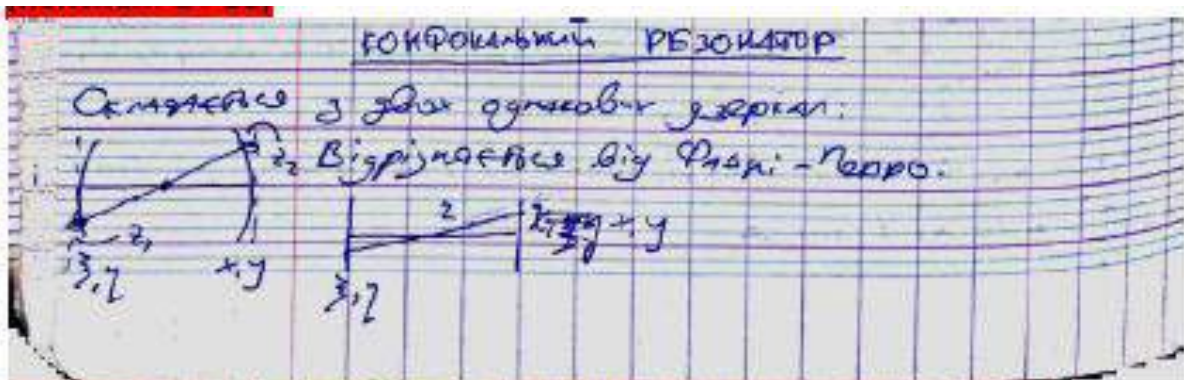 КОНФОКАЛЬНИЙ РЕЗОНАТОР
Складається з двох однакових дзеркал.
z₂ Відрізняється від Фабрі-Перро.
z x, y
z₁
ξ, η x, y ξ, η